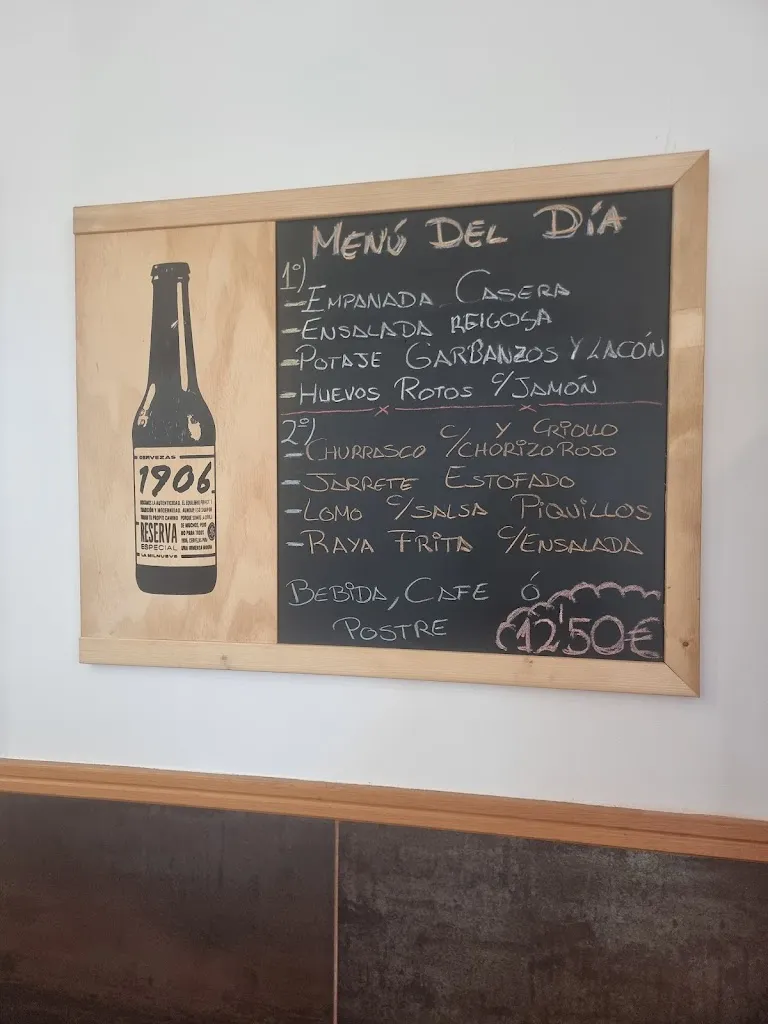 MENÚ DEL DÍA
1º)
- EMPANADA CASERA
- ENSALADA REIGOSA
- POTAJE GARBANZOS Y LACÓN
- HUEVOS ROTOS C/JAMÓN
2º)
- CHURRASCO C/CHORIZO ROJO Y CRIOLLO
- JARRETE ESTOFADO
- LOMO C/SALSA PIQUILLOS
- RAYA FRITA C/ENSALADA
BEBIDA, CAFE Ó
POSTRE
12'50€
CERVEZAS
1906
RESERVA
ESPECIAL
LA MILNUEVE